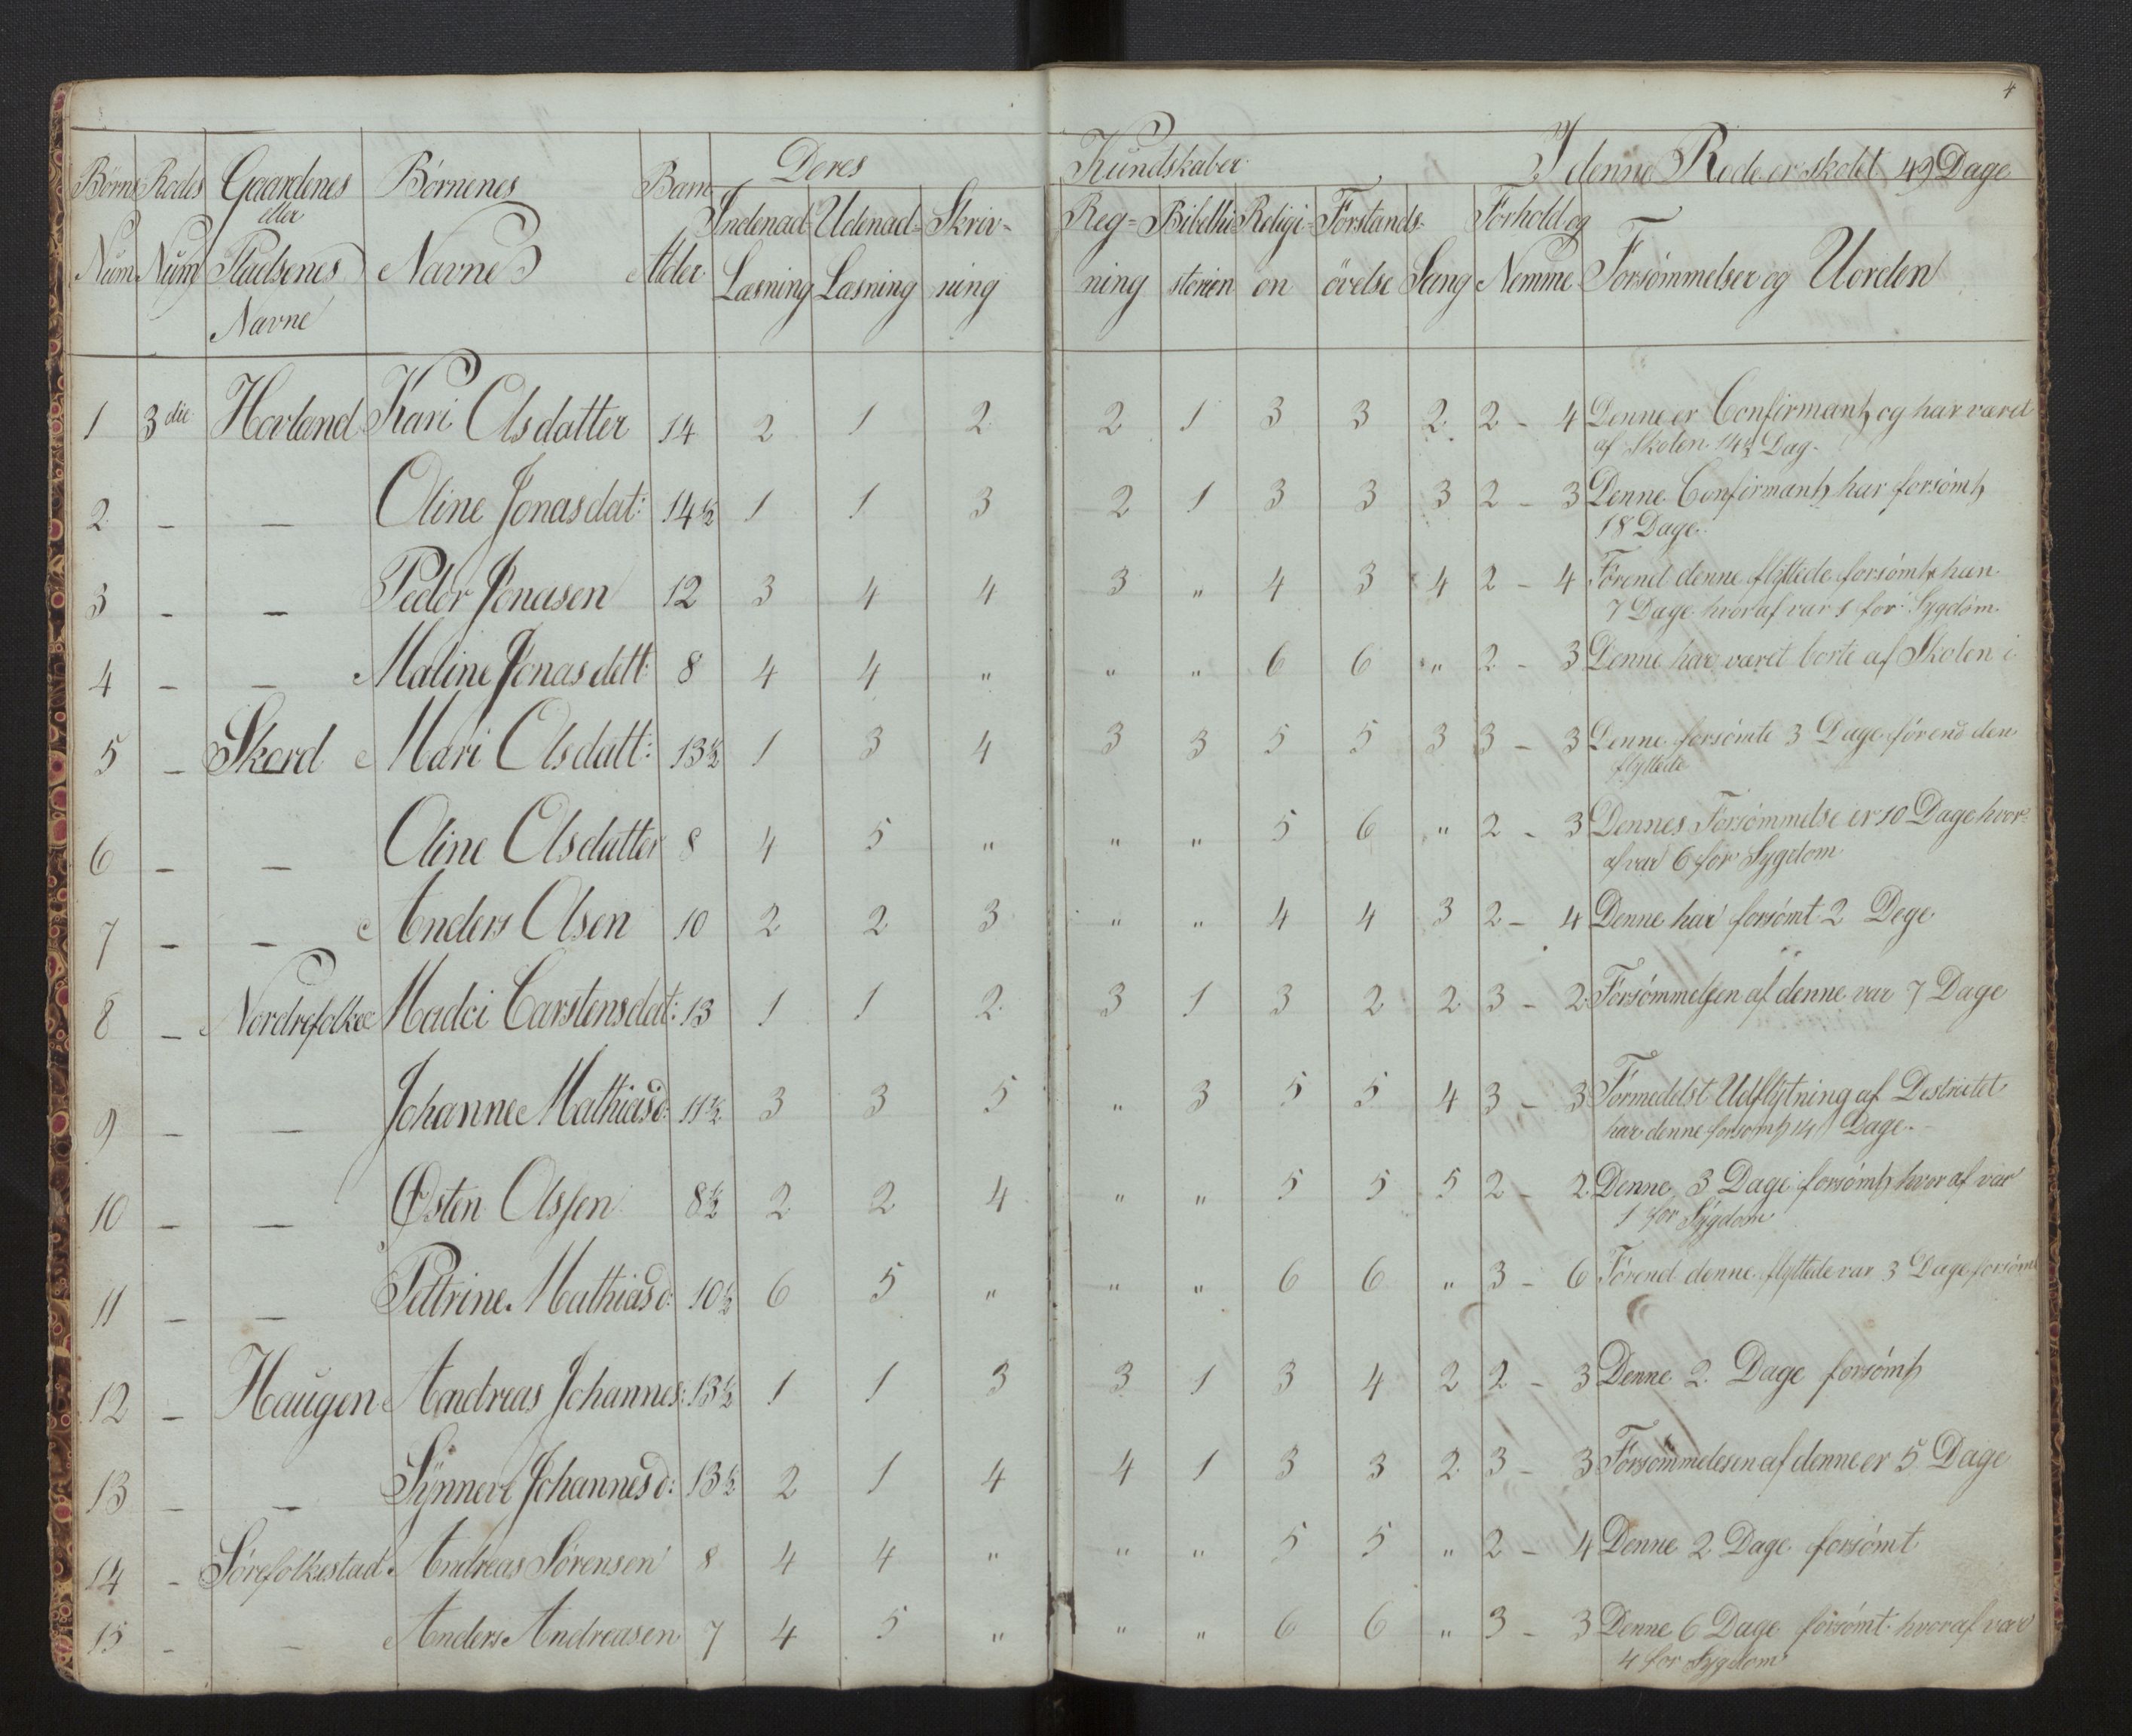 4
Börns Rodes Gaardenes Börnenes Barn Deres Kundskaber I denne Rode er skolet 49 Dage
eller Indenad- Udenad- Skriv- Reg- Bibelhi Religi- Forstands- Forhold og
Num Num Pladsenes Navne Alder Læsning Læsning ning ning storien on övelse Sang Nemme Forsömmelser og Uorden
Navne
1 3die Hovland Kari Olsdatter 14 2 1 2 2 1 3 3 2 2 - 4 Denne er Confirmant, og har været
af Skolen 14½ Dag.
2 - - Oline Jonasdat: 14½ 1 1 3 2 1 3 3 3 2 - 3 Denne Confirmant har forsömt
18 Dage.
3 - - Peder Jonasen 12 3 4 4 3 " 4 3 4 2 - 4 Förend denne flyttede forsömte han
7 Dage hvoraf var 1 for Sygdom.
4 - - Maline Jonasdatt: 8 4 4 " " " 6 6 " 2 - 3 Denne har været borte af Skolen i
5 - Skord Mari Olsdatt: 13½ 1 3 4 3 3 5 5 3 3 - 3 Denne forsömte 3 Dage förend den
flyttede
6 - - Oline Olsdatter 8 4 5 " " " 5 6 " 2 - 3 Dennes Forsömmelse er 10 Dage hvor-
af var 6 for Sygdom
7 - - Anders Olsen 10 2 2 3 " " 4 4 3 2 - 4 Denne har forsömt 2 Dage
8 - Nordrefolke Madci Carstensdat: 13 1 1 2 3 1 3 2 2 3 - 2 Forsömmelsen af denne var 7 Dage
9 - - Johanne Mathiasd: 11½ 3 3 5 " 3 5 5 4 3 - 3 Formedelst Udflytning af Destrictet
har denne forsömt 14 Dage.
10 - - Østen Olssen 8½ 2 2 4 " " 5 5 5 2 - 2 Denne 3 Dage forsömt, hvoraf var
1 for Sygdom
11 - - Pettrine Mathiasd: 10½ 6 5 " " " 6 6 " 3 - 6 Förend denne flyttede var 3 Dage forsömt
12 - Haugen Andreas Johannes: 13½ 1 1 3 3 1 3 4 2 2 - 3 Denne 2 Dage forsömt
13 - - Synneve Johannesd: 13½ 2 1 4 4 1 3 3 2 3 - 3 Forsömmelesen af denne er 5 Dage
14 - Sörefolkestad Andreas Sörensen 8 4 4 " " " 5 5 " 2 - 4 Denne 2 Dage forsömt
15 - - Anders Andreasen 7 4 5 " " " 6 6 " 3 - 3 Denne 6 Dage forsömt hvoraf var
4 for Sygdom